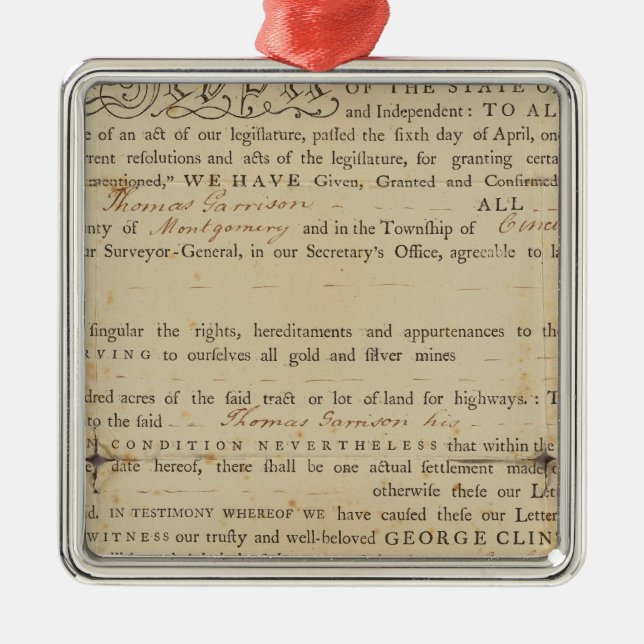 OF THE STATE O
and Independent: TO AL
e of an act of our legiſlature, paſſed the ſixth day of April, on
rrent reſolutions and acts of the legiſlature, for granting certa
mentioned," WE HAVE Given, Granted and Confirmed
Thomas Garrison ALL
unty of Montgomery and in the Townſhip of Cinci
ur Surveyor-General, in our Secretary's Office, agreeable to la
ſingular the rights, hereditaments and appurtenances to the
RVING to ourſelves all gold and ſilver mines
dred acres of the ſaid tract or lot of land for highways. : T
to the ſaid Thomas Garrison his
N CONDITION NEVERTHELESS that within the
e, date hereof, there ſhall be one actual ſettlement made o
otherwiſe theſe our Lett
d. IN TESTIMONY WHEREOF WE have cauſed theſe our Letter
WITNESS our truſty and well-beloved GEORGE CLIN